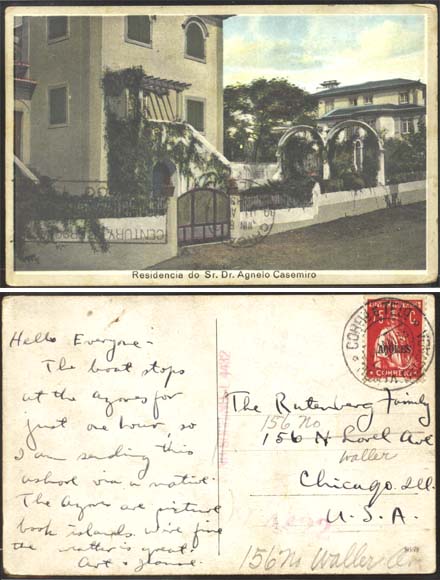 Residencia do Sr. Dr. Agnelo Casemiro
CENTURY
JUN
Hello Everyone-
The boat stops
at the Azores for
just one hour, so
I am sending this
ashore via a native.
The Azores are picture
book islands. We're fine
the water's great.
Art &
The Rutenberg Family
156 No
156 N. Lorel Ave
Waller
Chicago. Ill.
U.S.A.
156 No Waller Av
AÇORES
CORREIO